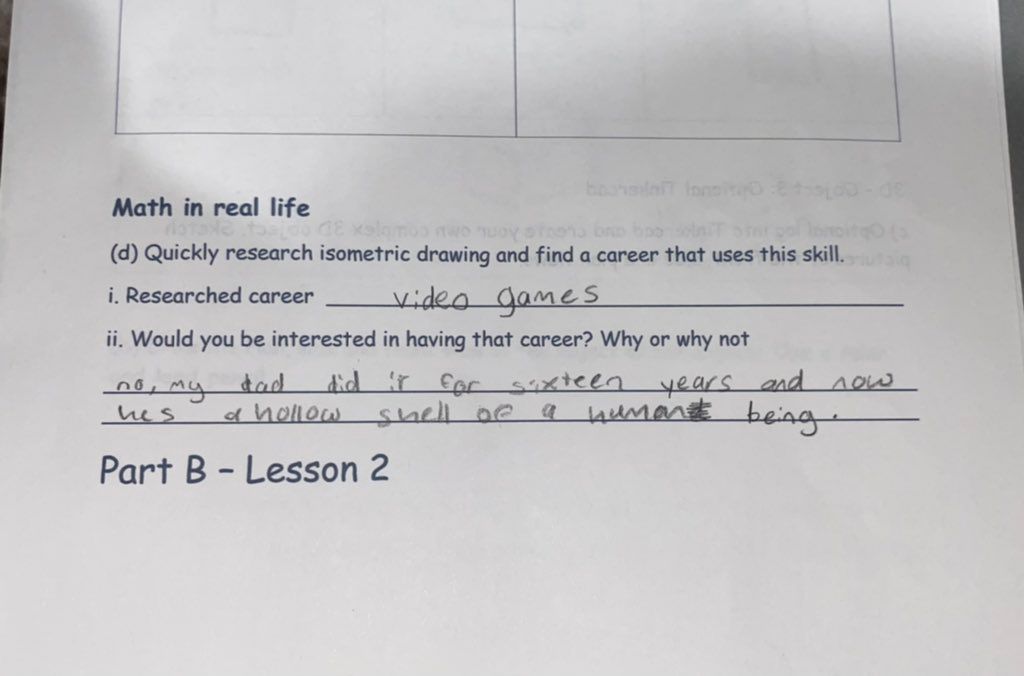 Math in real life
(d) Quickly research isometric drawing and find a career that uses this skill.
i. Researched career video games
ii. Would you be interested in having that career? Why or why not
no, my dad did it for sixteen years and now
hes a hollow shell of a human being.
Part B - Lesson 2